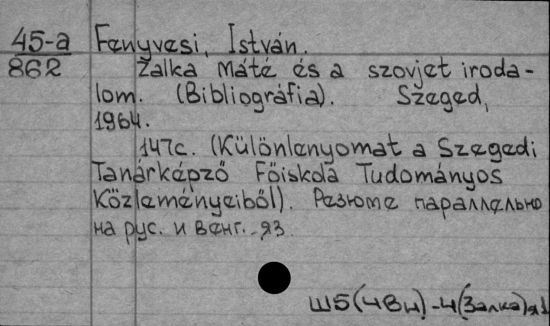 45-а Fenyvesi, István.
862 Zalka Máté és a szovjet iroda-
lom. (Bibliográfia). Szeged,
1964.
147с. (Különlenyomat a Szegedi
Tanárképző Főiskola Tudományos
Közleményeiből). Резюме параллельно
на рус. и венг. яз.
Ш5(4Вн)-4(Залка)я1